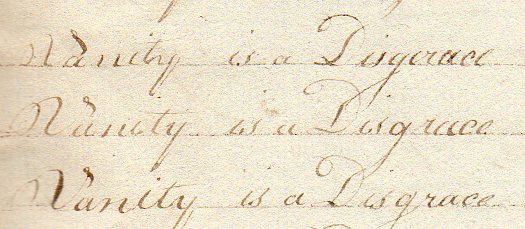 Vanity is a Disgerace
Vanity is a Disgrace
Vanity is a Disgrace